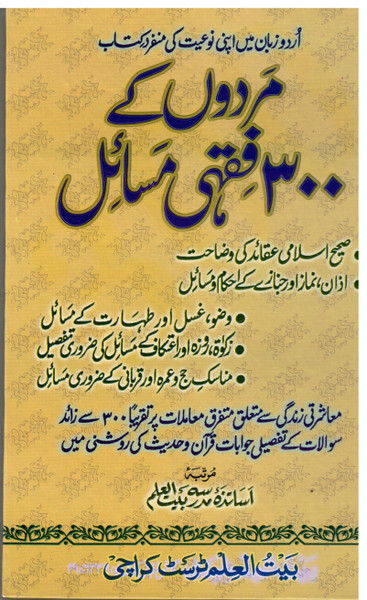 اُردو زبان میں اپنی نوعیت کی منفرد کتاب
مَردوں کے
۳۰۰ فِقہی مسَائِل
• صحیح اسلامی عقائد کی وضاحت
• اذان، نماز اور جنازے کے احکام و مسَائل
• وضو، غسل اور طہارت کے مسَائل
• زکوٰۃ، روزہ اور اعتکاف کے مسَائل کی ضروری تفصیل
• مناسکِ حج و عمرہ اور قربانی کے ضروری مسَائل
معاشرتی زندگی سے متعلق متفرق معاملات پر تقریبًا ۳۰۰ سے زائد
سوالات کے تفصیلی جوابات قرآن و حدیث کی روشنی میں
مرتبہ
اَسَاتذۂ مدرسہ بیت العلم
بَیتُ العِلم ٹرسٹ کراچی